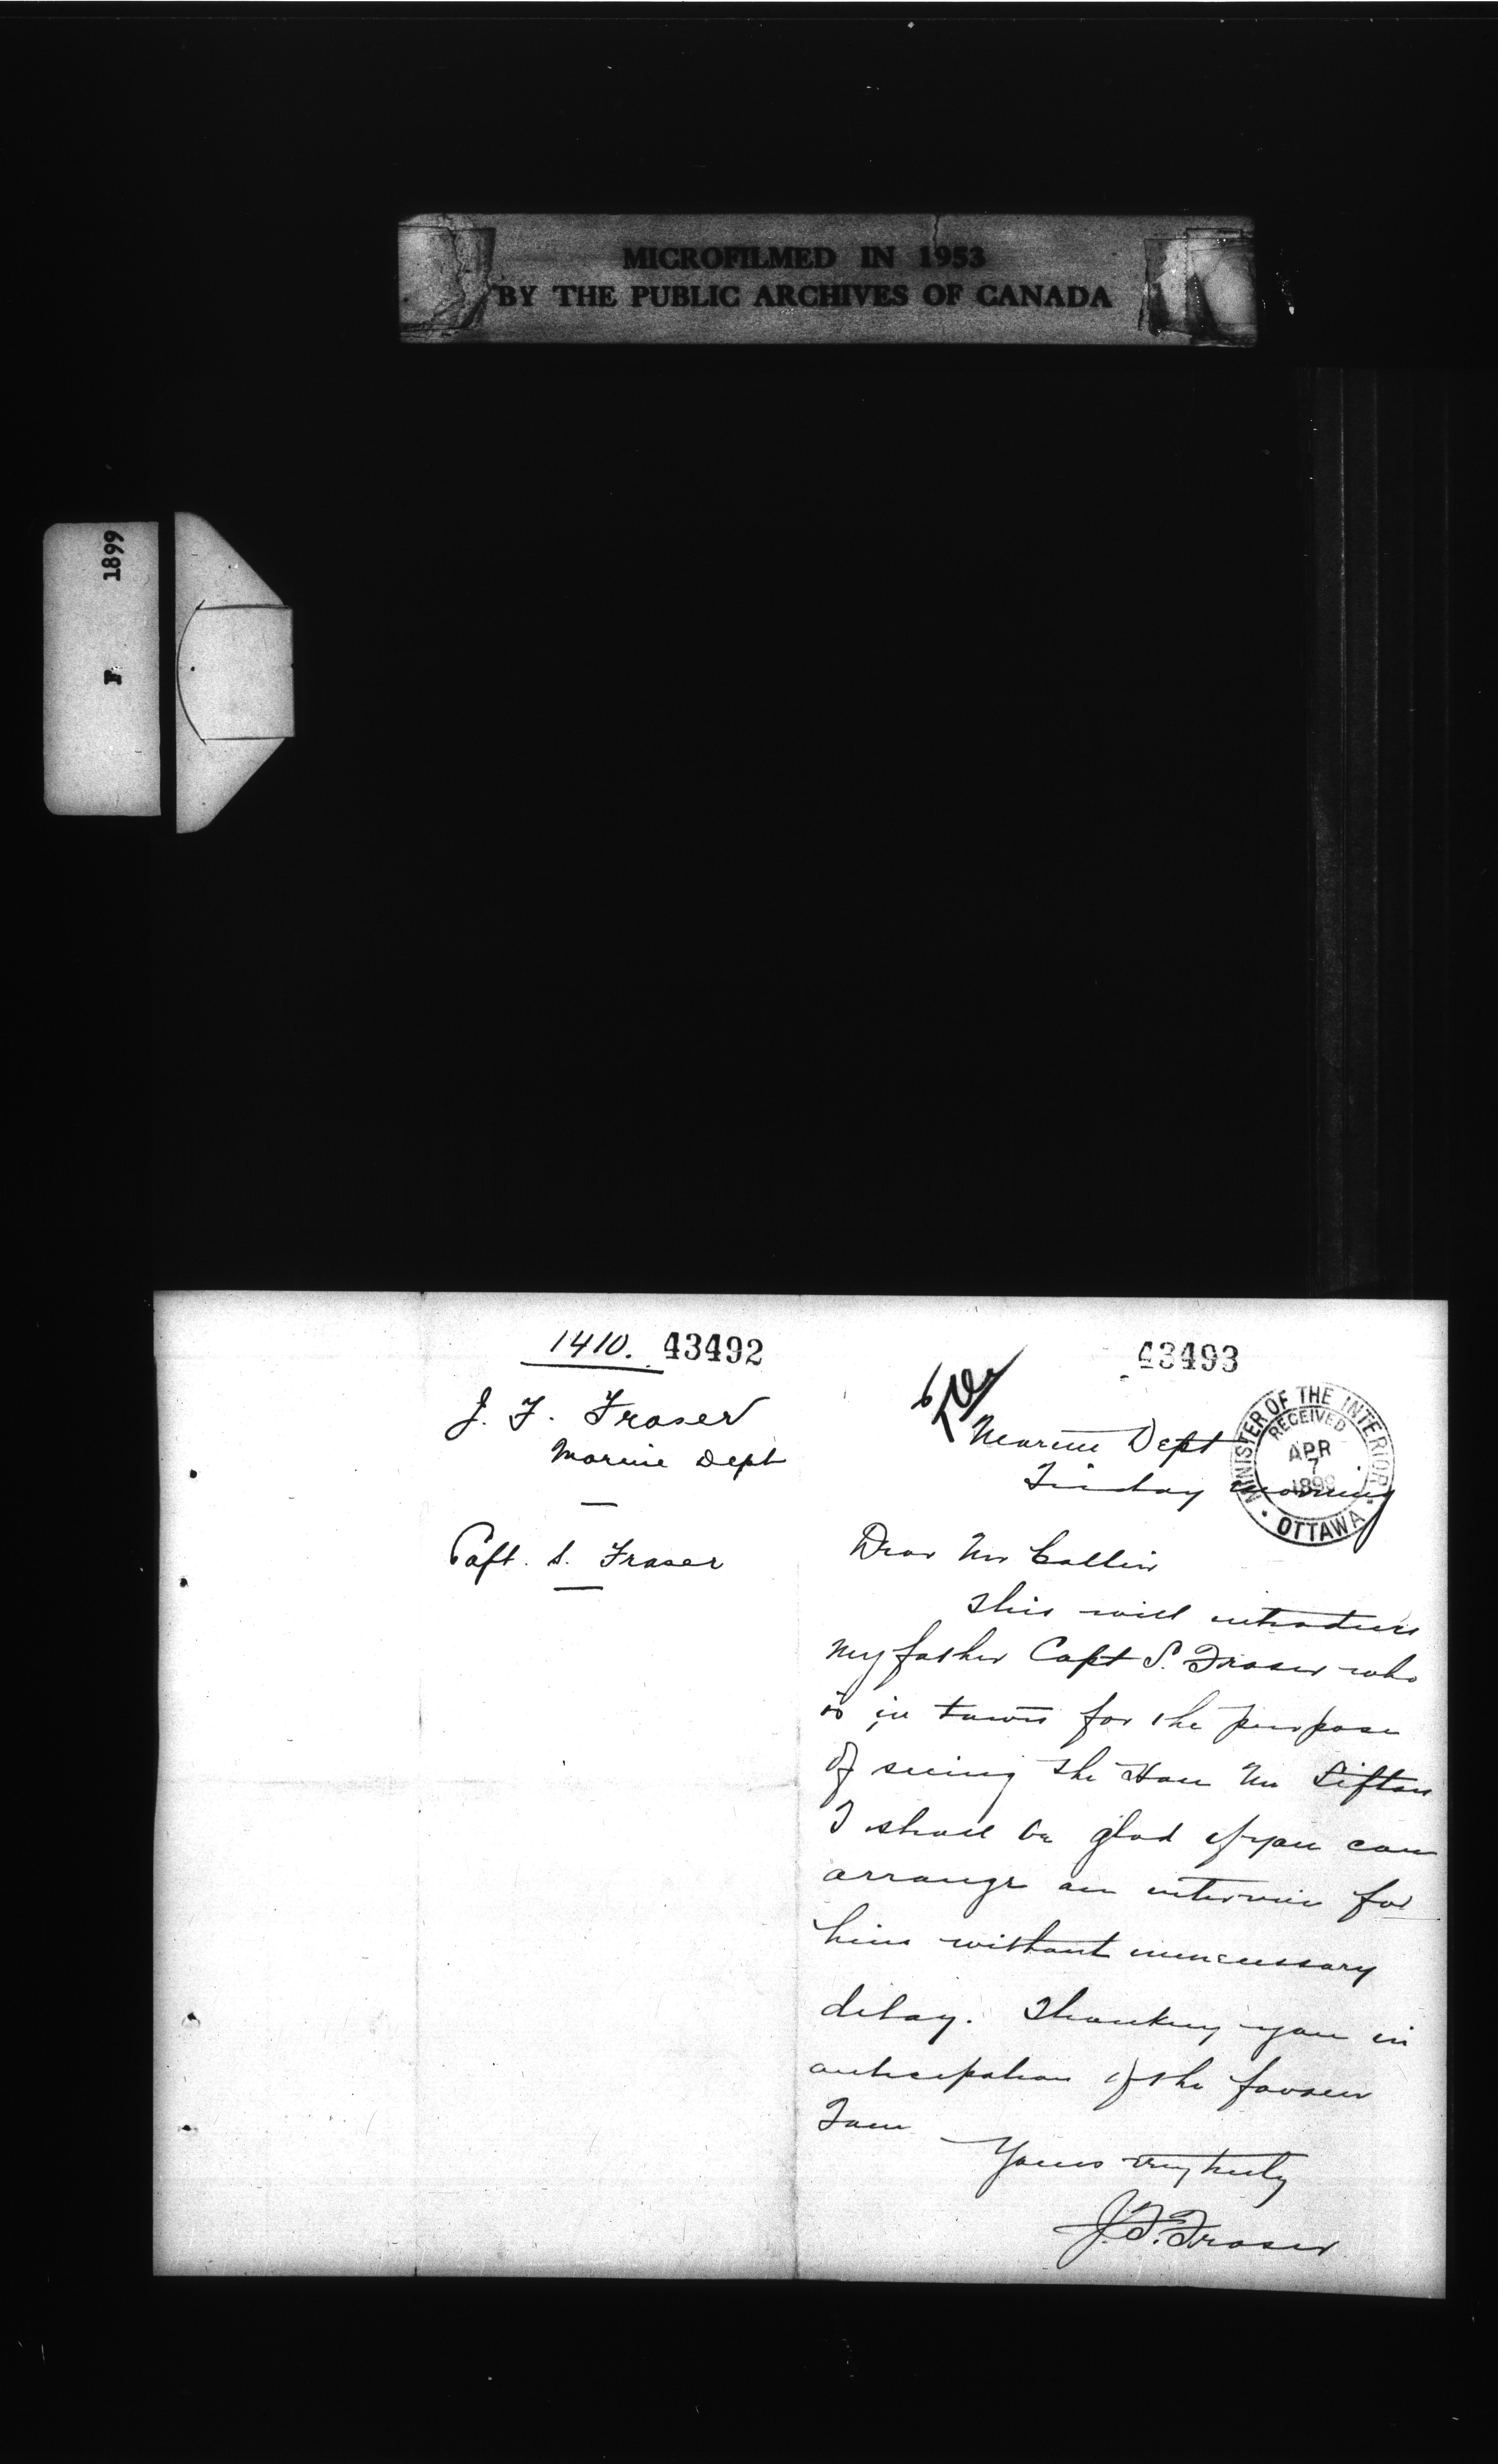 MICROFILMED IN 1953
BY THE PUBLIC ARCHIVES OF CANADA
F 1899
1410. 43492
J. F. Fraser
Marine Dept
Capt. S. Fraser
43493
Marine Dept
Friday morning
MINISTER OF THE INTERIOR
RECEIVED
APR
7
1899
OTTAWA
Dear Mr Collier
This will introduce
my father Capt S. Fraser who
is in town for the purpose
of seeing the Hon Mr Sifton
I shall be glad if you can
arrange an interview for
him without unnecessary
delay. Thanking you in
anticipation of the favour
I am
Yours very truly
J. F. Fraser